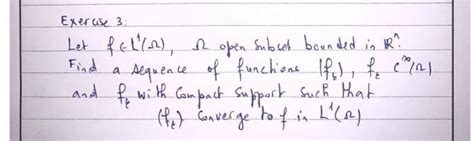 Exercise 3:
Let f ∈ L¹(Ω), Ω open subset bounded in ℝⁿ.
Find a sequence of functions (f_k), f_k C^∞(Ω)
and f_k with compact support such that
(f_k) converge to f in L¹(Ω)